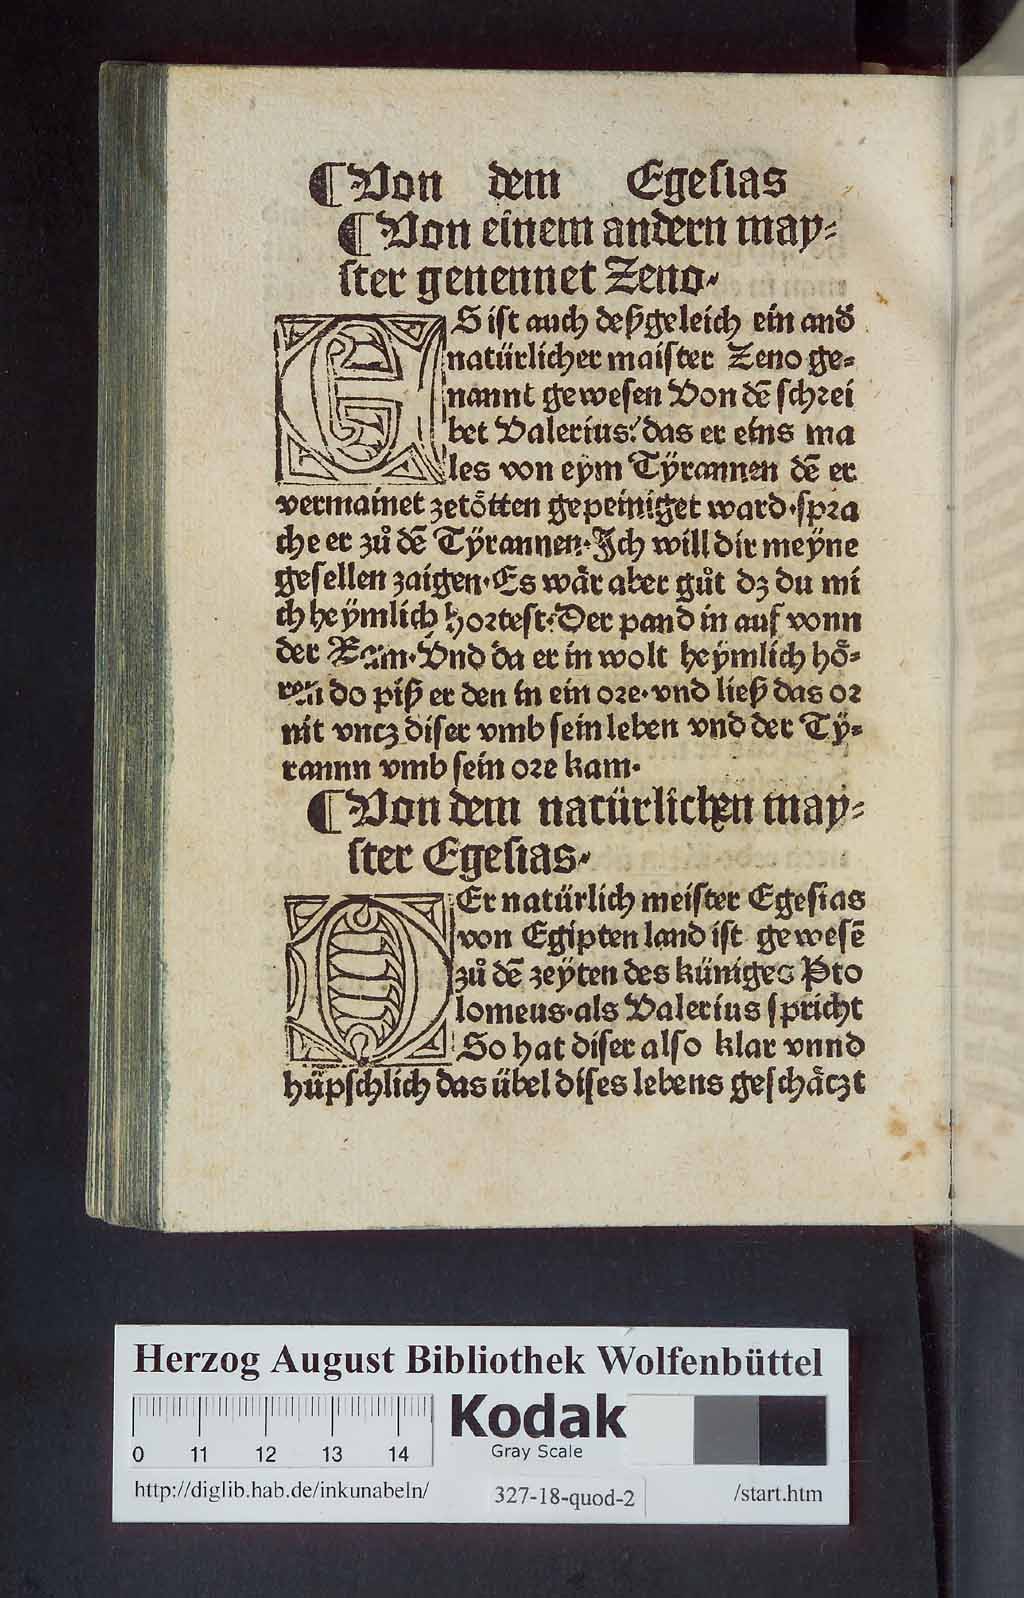 ¶Von dem Egesias
¶Von einem andern may⸗
ster genennet Zeno·
ES ist auch deßgeleich ein and̄
natürlicher maister Zeno ge⸗
nannt gewesen Von dē schrei
bet Valerius: das er eins ma
les von eym Tÿrannen dē er
vermainet zetoͤtten gepeiniget ward·spra
che er zů dē Tÿrannen·Ich will dir meÿne
gesellen zaigen·Es waͤr aber gůt dz du mi
ch heÿmlich hortest·Der pand in auf vonn
der Ram·Vnd da er in wolt heÿmlich hoͤ⸗
ren do piß er den in ein ore·vnd ließ das or
nit vntz diser vmb sein leben vnd der Tÿ⸗
rannn vmb sein ore kam·
¶Von dem natürlichen may⸗
ster Egesias·
DEr natürlich meister Egesias
von Egipten land ist gewesē
zů dē zeÿten des küniges Pto
lomeus·als Valerius spricht
So hat diser also klar vnnd
hüpschlich das übel dises lebens geschaͤczt
Herzog August Bibliothek Wolfenbüttel
Kodak
Gray Scale
0 11 12 13 14
http://diglib.hab.de/inkunabeln/ 327-18-quod-2 /start.htm